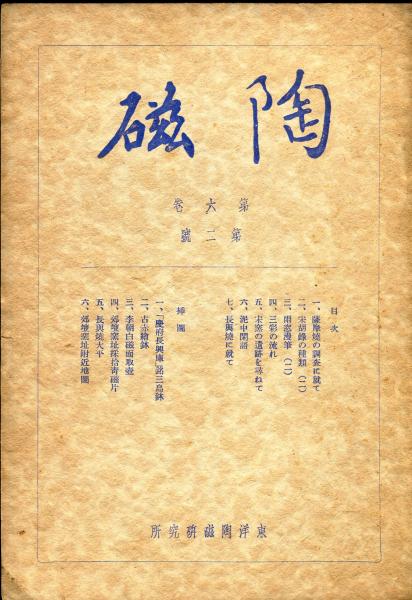 陶磁
第六卷
第二號
目次
一、薩摩燒の調査に就て
二、宋胡錄の種類(二)
三、雨窓漫筆(二)
四、三彩の流れ
五、宋窯の遺跡を尋ねて
六、泥中閑語
七、長與燒に就て
挿圖
一、「慶府長興庫」銘三島鉢
二、古赤繪鉢
三、李朝白磁面取壺
四、郊壇窯址採拾靑磁片
五、長與燒大平
六、郊壇窯址附近地圖
東洋陶磁硏究所